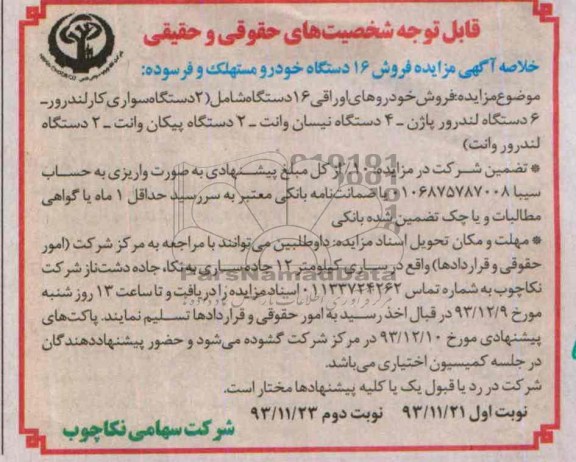 قابل توجه شخصیت‌های حقوقی و حقیقی
خلاصه آگهی مزایده فروش ۱۶ دستگاه خودرو مستهلك و فرسوده:
موضوع مزایده:فروش خودروهای اوراقی ۱۶ دستگاه شامل (۲ دستگاه سواری کار لندرور ـ
۶ دستگاه لندرور پاژن ـ ۴ دستگاه نیسان وانت ـ ۲ دستگاه پیکان وانت ـ ۲ دستگاه
لندرور وانت)
* تضمین شرکت در مزایده: از کل مبلغ پیشنهادی به صورت واریزی به حساب
سیبا ۰۱۰۶۸۷۵۷۸۷۰۰۸ یا ضمانت‌نامه بانکی معتبر به سررسید حداقل ۱ ماه یا گواهی
مطالبات و یا چک تضمین شده بانکی
* مهلت و مکان تحویل اسناد مزایده: داوطلبین می‌توانند با مراجعه به مرکز شرکت (امور
حقوقی و قراردادها) واقع در ساری کیلومتر ۱۲ جاده ساری به نکا، جاده دشت‌ناز شرکت
نکاچوب به شماره تماس ۰۱۱۳۳۷۲۴۲۶۲ اسناد مزایده را دریافت و تا ساعت ۱۳ روز شنبه
مورخ ۹۳/۱۲/۹ در قبال اخذ رسید به امور حقوقی و قراردادها تسلیم نمایند. پاکت‌های
پیشنهادی مورخ ۹۳/۱۲/۱۰ در مرکز شرکت گشوده می‌شود و حضور پیشنهاددهندگان
در جلسه کمیسیون اختیاری می‌باشد.
شرکت در رد یا قبول یک یا کلیه پیشنهادها مختار است.
نوبت اول ۹۳/۱۱/۲۱ نوبت دوم ۹۳/۱۱/۲۳
شرکت سهامی نکاچوب
ParsNamadData